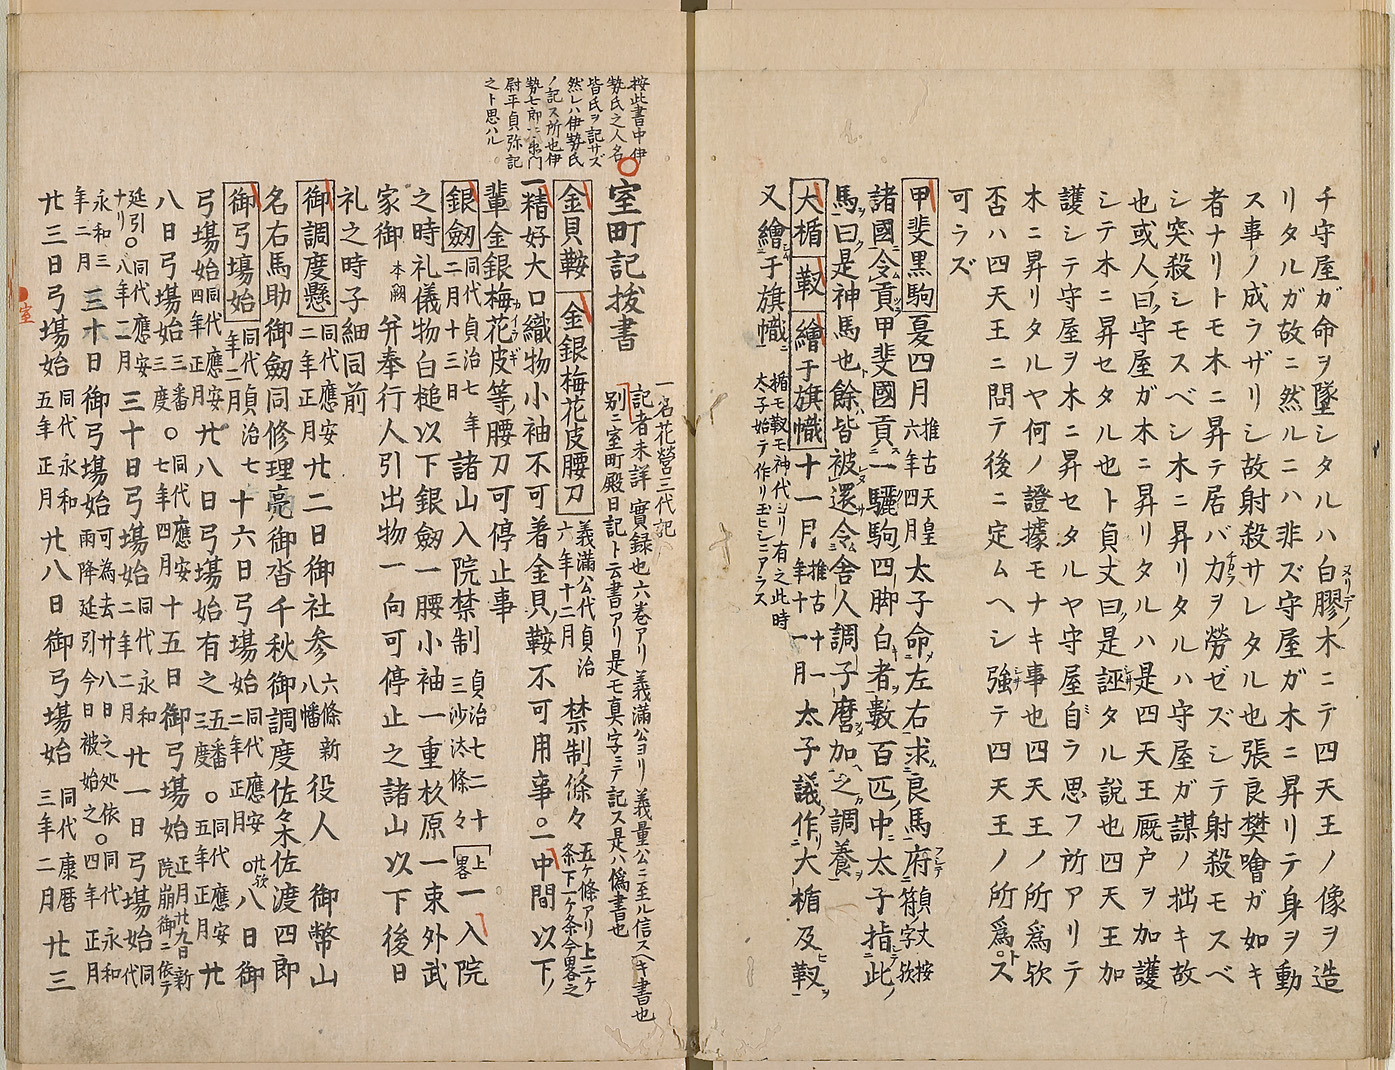 チ守屋ガ命ヲ墜シタルハ白膠木ニテ四天王ノ像ヲ造
リタルガ故ニ然ルニハ非ズ守屋ガ木ニ昇リテ身ヲ動
ス事ノ成ラザリシ故射殺サレタル也張良樊噲ガ如キ
者ナリトモ木ニ昇テ居バ力ヲ勞ゼズシテ射殺モスベ
シ突殺シモスベシ木ニ昇リタルハ守屋ガ謀ノ拙キ故
也或人曰守屋ガ木ニ昇リタルハ是四天王厩戸ヲ加護
シテ木ニ昇セタル也ト貞丈曰是誣タル說也四天王加
護シテ守屋ヲ木ニ昇セタルヤ守屋自ラ思フ所アリテ
木ニ昇リタルヤ何ノ證據モナキ事也四天王ノ所爲欤
否ハ四天王ニ問テ後ニ定ムヘシ強テ四天王ノ所爲トス
可ラズ
甲斐黒駒 夏四月 推古天皇六年四月 太子命左右求良馬府 丈按字欤
諸國令貢甲斐國貢一驪駒四脚白者數百匹中太子指此
馬曰是神馬也餘皆被還令舎人調子麿加之調養
大楯 靫 繪于旗幟 十一月 推古十一年十一月 太子議作大楯及靫
又繪于旗幟 楯モ靫モ神代ヨリ有之此時太子始テ作リ玉ヒシニアラス
按此書中伊
勢氏之人名
皆氏ヲ記サズ
然レハ伊勢氏
ノ記ス所也伊
勢七郎左衛門
尉平貞弥記
之ト思ハル
室町記抜書
一名花營三代記
記者未詳 實録也六巻アリ義滿公ヨリ義量公ニ至ル信スヘキ書也
別ニ室町殿日記ト云書アリ是モ真字ニテ記ス是ハ僞書也
金貝鞍 金銀梅花皮腰刀 義滿公代貞治六年十二月 禁制條々 五ケ條アリ上二ケ条下一ケ条今畧之
一精好大口織物小袖不可着金貝鞍不可用事。一中間以下
輩金銀梅花皮等腰刀可停止事
銀劔 同代貞治七年二月十三日 諸山入院禁制 貞治七二十三沙汰條々 上畧 一入院
之時礼儀物白槌以下銀劔一腰小袖一重杉原一束外武
家御 本闕 并奉行人引出物一向可停止之諸山以下後日
礼之時子細同前
御調度懸 同代應安二年正月 廿二日御社参 六條新八幡 役人 御幣山
名右馬助御劔同修理亮御沓千秋御調度佐々木佐渡四郎
御弓場始 同代貞治七年二月 十六日弓場始 同代應安二年正月 廿欤八日御
弓場始 同代應安四年正月 廿八日弓場始有之 五番三度 。同代應安五年正月 廿
八日弓場始 三番三度 。同代應安七年四月 十五日御弓場始 正月廿九日新院崩御ニ依テ
延引。同代應安八年二月 三十日弓場始 同代永和二年二月 廿一日弓場始 同代
永和三年二月 三十日御弓場始 可為去廿八日之処依雨降延引今日被始之 。同代永和四年正月
廿三日弓場始 同代永和五年正月 廿八日御弓場始 同代康暦三年二月 廿三
室